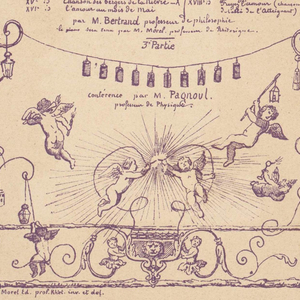 XVe : Chanson des bergers de la Notre — X XVIIIe :
L'amour au mois de Mai
par M. Bertrand professeur de philosophie
le piano sera tenu par M. Morel, professeur de Rhétorique.
3e Partie
conférence par M. Pagnoul.
professeur de Physique.
Morel Ed. prof. Rhét. inv. et del.